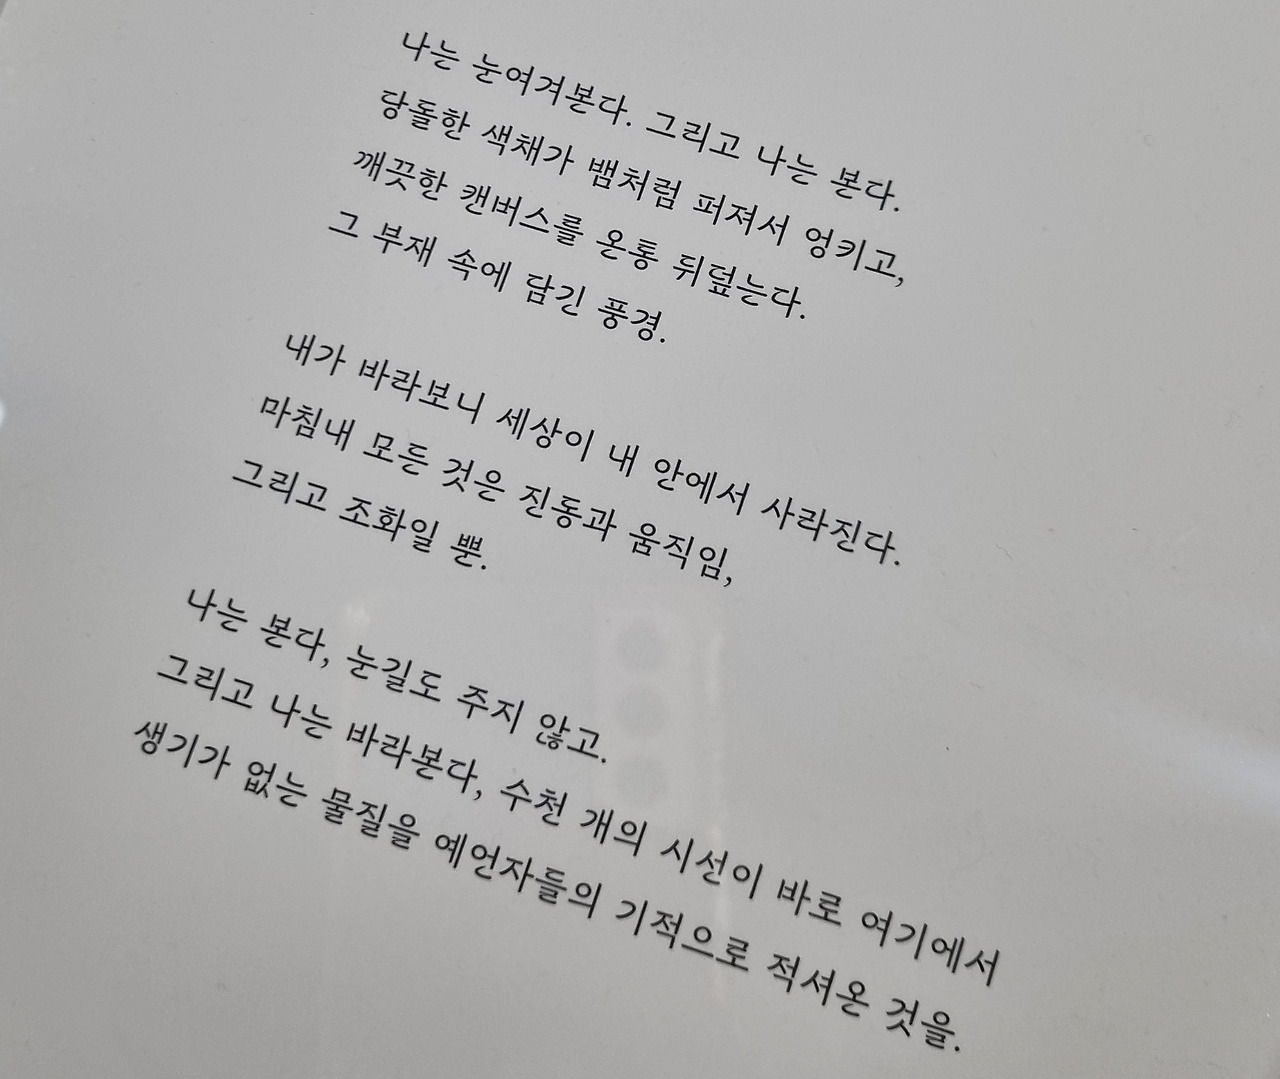 나는 눈여겨본다. 그리고 나는 본다.
당돌한 색채가 뱀처럼 퍼져서 엉키고,
깨끗한 캔버스를 온통 뒤덮는다.
그 부재 속에 담긴 풍경.
내가 바라보니 세상이 내 안에서 사라진다.
마침내 모든 것은 진동과 움직임,
그리고 조화일 뿐.
나는 본다, 눈길도 주지 않고.
그리고 나는 바라본다, 수천 개의 시선이 바로 여기에서
생기가 없는 물질을 예언자들의 기적으로 적셔온 것을.